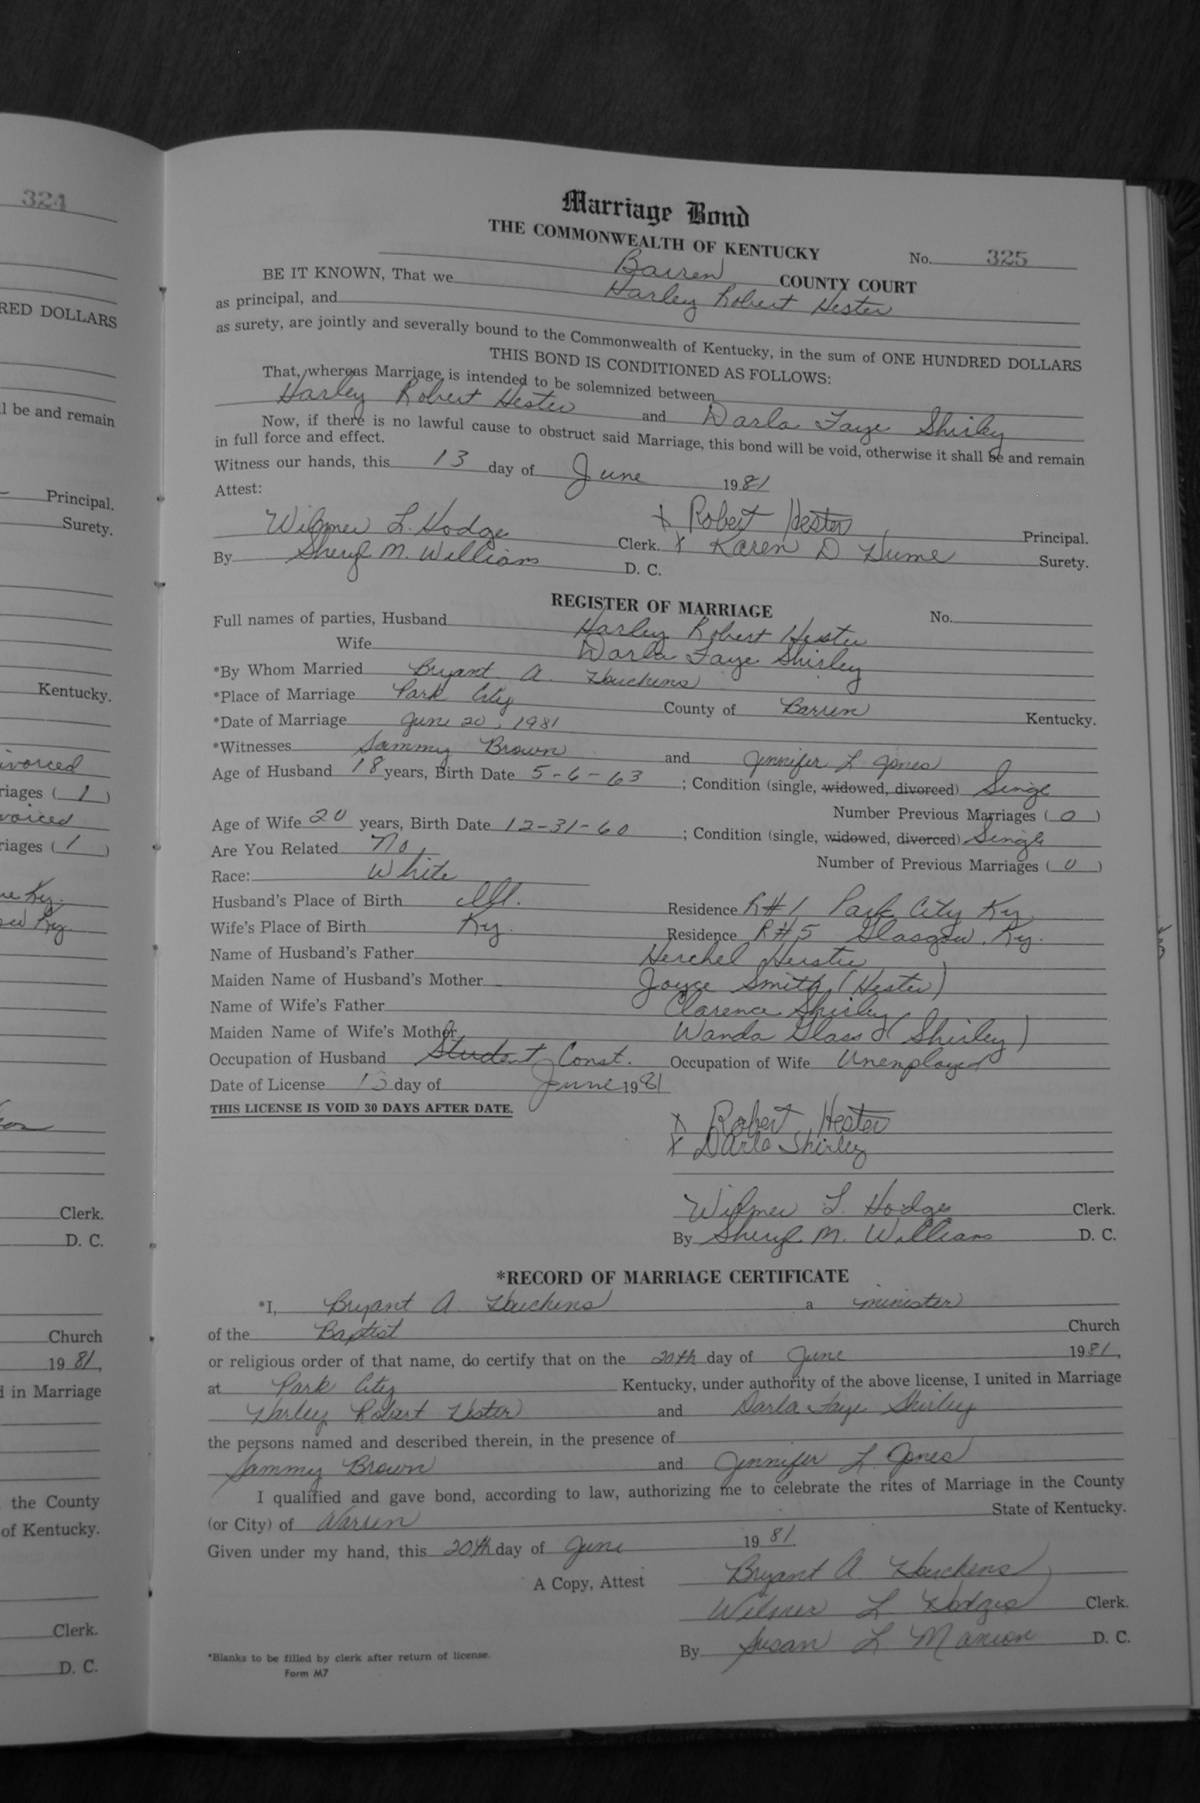 324
RED DOLLARS
ll be and remain
Principal.
Surety.
Kentucky.
ivorced
riages ( 1 )
vorced
riages ( 1 )
Ky.
Ky.
Clerk.
D. C.
Church
19 81,
d in Marriage
the County
of Kentucky.
Clerk.
D. C.
Marriage Bond
THE COMMONWEALTH OF KENTUCKY No. 325
Barren COUNTY COURT
BE IT KNOWN, That we Harley Robert Hester
as principal, and
as surety, are jointly and severally bound to the Commonwealth of Kentucky, in the sum of ONE HUNDRED DOLLARS
THIS BOND IS CONDITIONED AS FOLLOWS:
That, whereas Marriage is intended to be solemnized between
Harley Robert Hester and Darla Faye Shirley
Now, if there is no lawful cause to obstruct said Marriage, this bond will be void, otherwise it shall be and remain
in full force and effect.
Witness our hands, this 13 day of June 1981
Attest:
x Robert Hester Principal.
Wilmer L. Hodge Clerk. x Karen D Hume Surety.
By Sheryl M. William D. C.
REGISTER OF MARRIAGE
Full names of parties, Husband Harley Robert Hester No.
Wife Darla Faye Shirley
*By Whom Married Bryant A Houchens
*Place of Marriage Park City County of Barren Kentucky.
*Date of Marriage June 20, 1981
*Witnesses Sammy Brown and Jennifer L Jones
Age of Husband 18 years, Birth Date 5-6-63 ; Condition (single, widowed, divorced) Single
Number Previous Marriages ( 0 )
Age of Wife 20 years, Birth Date 12-31-60 ; Condition (single, widowed, divorced) Single
Are You Related No Number of Previous Marriages ( 0 )
Race: White
Husband's Place of Birth Ill. Residence R#1 Park City Ky
Wife's Place of Birth Ky. Residence R#5 Glasgow, Ky.
Name of Husband's Father Herchel Hester
Maiden Name of Husband's Mother Joyce Smith (Hester)
Name of Wife's Father Clarence Shirley
Maiden Name of Wife's Mother Wanda Glass (Shirley)
Occupation of Husband Student Const. Occupation of Wife Unemployed
Date of License 13 day of June 1981
THIS LICENSE IS VOID 30 DAYS AFTER DATE.
x Robert Hester
x Darla Shirley
Wilmer L. Hodge Clerk.
By Sheryl M. William D. C.
*RECORD OF MARRIAGE CERTIFICATE
*I, Bryant A Houchens a minister
of the Baptist Church
or religious order of that name, do certify that on the 20th day of June 1981,
at Park City Kentucky, under authority of the above license, I united in Marriage
Harley Robert Hester and Darla Faye Shirley
the persons named and described therein, in the presence of
Sammy Brown and Jennifer L Jones
I qualified and gave bond, according to law, authorizing me to celebrate the rites of Marriage in the County
(or City) of Warren State of Kentucky.
Given under my hand, this 20th day of June 19 81
Bryant A Houchens
A Copy, Attest Wilmer L Hodges Clerk.
By Susan L Manion D. C.
*Blanks to be filled by clerk after return of license.
Form M7